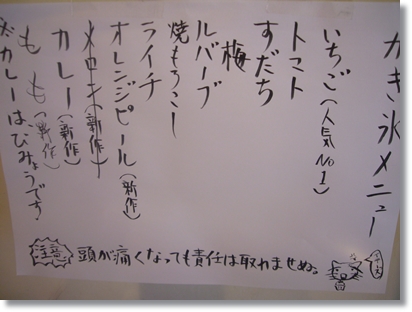 かき氷メニュー
いちご(人気No1)
トマト
すだち
梅
ルバーブ
焼もろこし
ライチ
オレンジピール(新作)
メロン(新作)
カレー(新作)
もも(新作)
カレーはびみょうです
注意 頭が痛くなっても責任は取れませぬ。